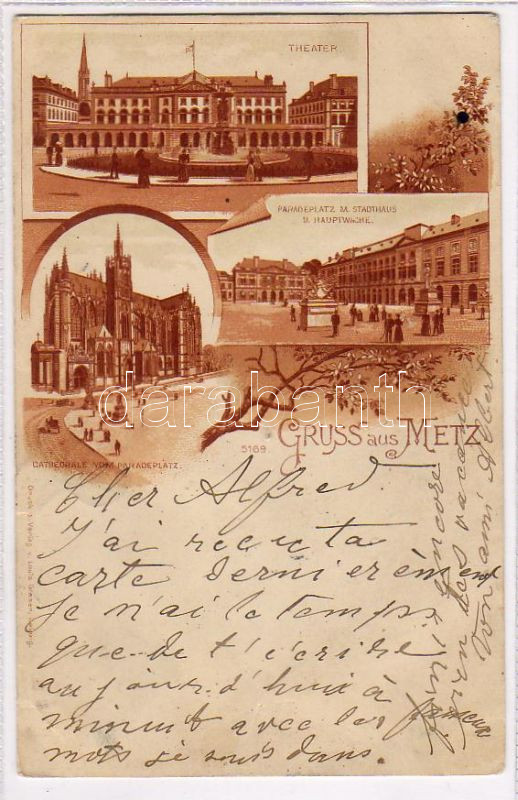 THEATER.
PARADEPLATZ M. STADTHAUS
U. HAUPTWACHE.
CATHEDRALE VOM PARADEPLATZ.
5169
GRUSS AUS METZ
darabanth
Cher Alfred
J'ai reçu ta
carte dernièrement
Je n'ai le temps
que de t'écrire
aujourd'hui à
minuit avec les
mots je suis dans.
encore
des vacances
Ton ami Albert